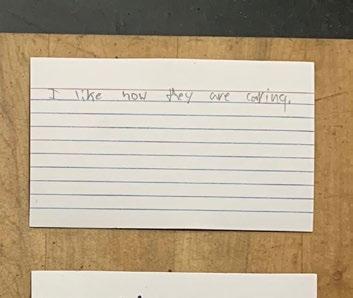 I like how they are caring.